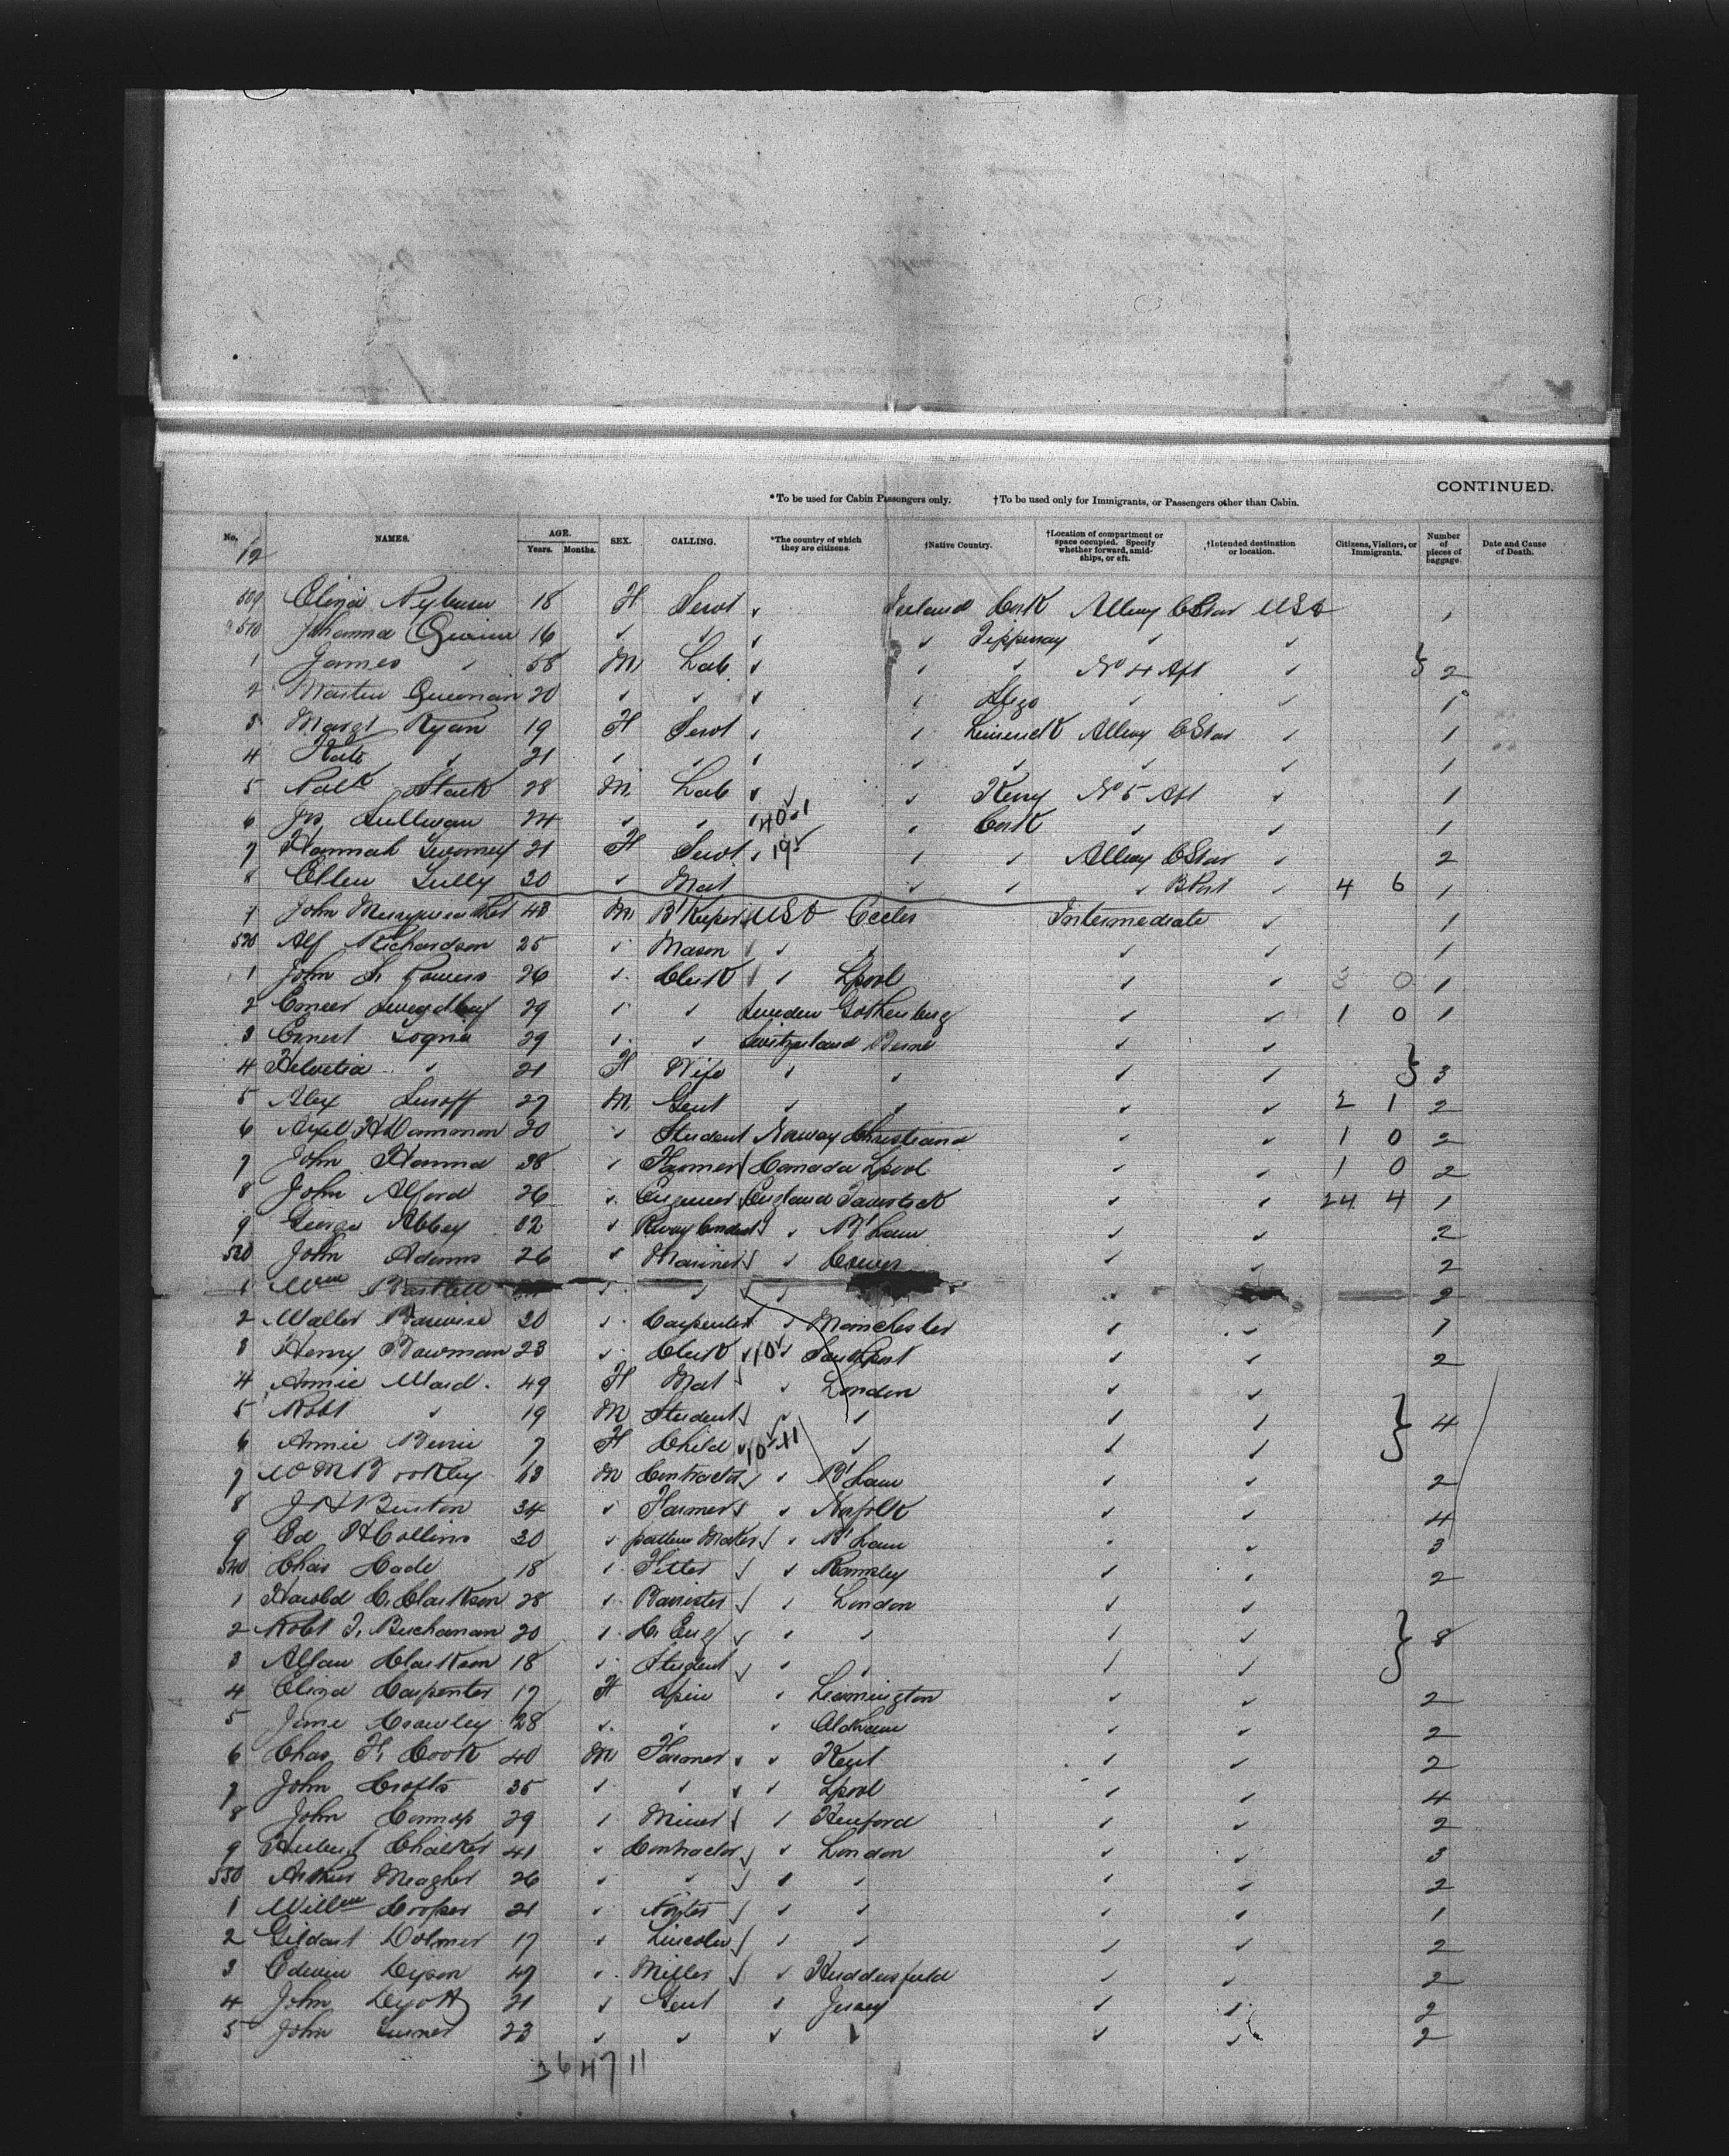 CONTINUED.
*To be used for Cabin Passengers only. †To be used only for Immigrants, or Passengers other than Cabin.
No. NAMES. AGE. Years. Months. SEX. CALLING. *The country of which they are citizens. †Native Country. †Location of compartment or space occupied. Specify whether forward, amidships, or aft. †Intended destination or location. Citizens, Visitors, or Immigrants. Number of pieces of baggage. Date and Cause of Death.
12
509 Eliza 18 F Servt ✓ Ireland Cork Allway CStar USA 1
510 Johanna Quinn 16 ✓ ✓ ✓ ✓ Tipperary ✓ ✓
1 James ✓ 58 M Lab ✓ ✓ ✓ No 4 Aft ✓ } 2
2 Martin 20 ✓ ✓ ✓ ✓ Sligo ✓ ✓ 1
3 Margt Ryan 19 F Servt ✓ ✓ Limerick Allway CStar ✓ 1
4 Kate ✓ 21 ✓ ✓ ✓ ✓ ✓ ✓ ✓ 1
5 Patk Stack 28 M Lab ✓ ✓ Kerry No 5 Aft ✓ 1
6 Jas Sullivan 24 ✓ ✓ ✓ ✓ Cork ✓ ✓ 1
7 Hannah Twomey 21 F Servt ✓ ✓ ✓ Allway CStar ✓ 2
8 Ellen Tully 30 ✓ Mat ✓ ✓ ✓ BPort ✓ 4 6 1
9 John Merryweather 43 M B'Keeper USA Eccles Intermediate ✓ 1
520 Alf Richardson 25 ✓ Mason ✓ ✓ ✓ ✓ 1
1 John S. Powers 26 ✓ Clerk ✓ Lpool ✓ ✓ 3 0 1
2 29 ✓ ✓ Sweden Gothenburg ✓ ✓ 1 0 1
3 Ernest 29 ✓ ✓ Switzerland Berne ✓ ✓
4 Helvetia ✓ 21 F Wife ✓ ✓ ✓ ✓ } 3
5 Alex 27 M Gent ✓ ✓ ✓ ✓ 2 1 2
6 Axel 20 ✓ Student Norway Christiania ✓ ✓ 1 0 2
7 John Hanna 38 ✓ Farmer Canada Lpool ✓ ✓ 1 0 2
8 John Alford 26 ✓ Engineer England Tavistock ✓ ✓ 24 4 1
9 George Abbey 32 ✓ ✓ B'ham ✓ ✓ 2
530 John Adams 26 ✓ Mariner ✓ Cowes ✓ ✓ 2
1 Wm Bartlett ✓ ✓ ✓ 2
2 Walter 20 ✓ Carpenter ✓ Manchester ✓ ✓ 1
3 Henry Bowman 23 ✓ Clerk ✓ Southport ✓ ✓ 2
4 Annie Ward 49 F Mat ✓ London ✓ ✓
5 Robt ✓ 19 M Student ✓ ✓ ✓ ✓ } 4
6 Annie 7 F Child ✓ ✓ ✓ ✓
7 M Contractor ✓ B'ham ✓ ✓ 2
8 J H 34 ✓ Farmer ✓ Norfolk ✓ ✓ 4
9 Ed H Collins 30 ✓ pattern Maker ✓ B'ham ✓ ✓ 3
540 Chas 18 ✓ Fitter ✓ ✓ ✓ ✓ 2
1 Harold C. Clarkson 28 ✓ Barrister ✓ London ✓ ✓
2 Robt T. Buchanan 20 ✓ C. Eng ✓ ✓ ✓ ✓ } 8
3 Allan Clarkson 18 ✓ Student ✓ ✓ ✓ ✓
4 Eliza Carpenter 17 F Spin ✓ Leamington ✓ ✓ 2
5 Jane Crawley 28 ✓ ✓ ✓ Oldham ✓ ✓ 2
6 Chas H. Cook 40 M Farmer ✓ ✓ Kent ✓ ✓ 2
7 John Crofts 35 ✓ ✓ ✓ ✓ Lpool ✓ ✓ 4
8 John 29 ✓ Miner ✓ Hereford ✓ ✓ 2
9 Hubert Chalker 41 ✓ Contractor ✓ ✓ London ✓ ✓ 3
550 Arthur Meagher 26 ✓ ✓ ✓ ✓ ✓ ✓ ✓ 2
1 Willm Cooper 21 ✓ Porter ✓ ✓ ✓ ✓ ✓ 1
2 17 ✓ ✓ ✓ ✓ ✓ ✓ 2
3 Edwin Dyson 47 ✓ Miller ✓ ✓ Huddersfield ✓ ✓ 2
4 John Dyott 21 ✓ Gent ✓ Jersey ✓ ✓ 2
5 John Turner 23 ✓ ✓ ✓ ✓ ✓ 2
36 47 11